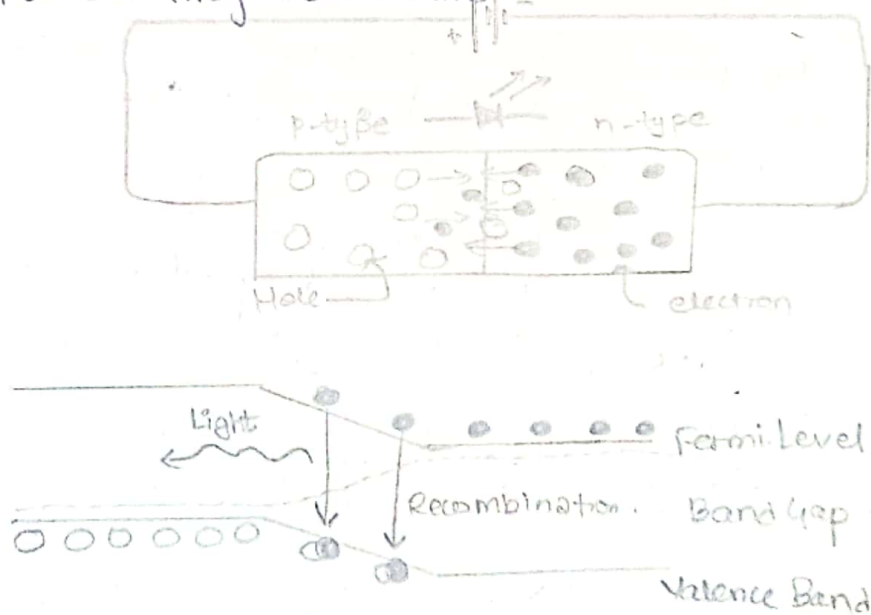 + -
p-type n-type
Hole electron
Light
Fermi Level
Recombination. Band Gap
Valence Band